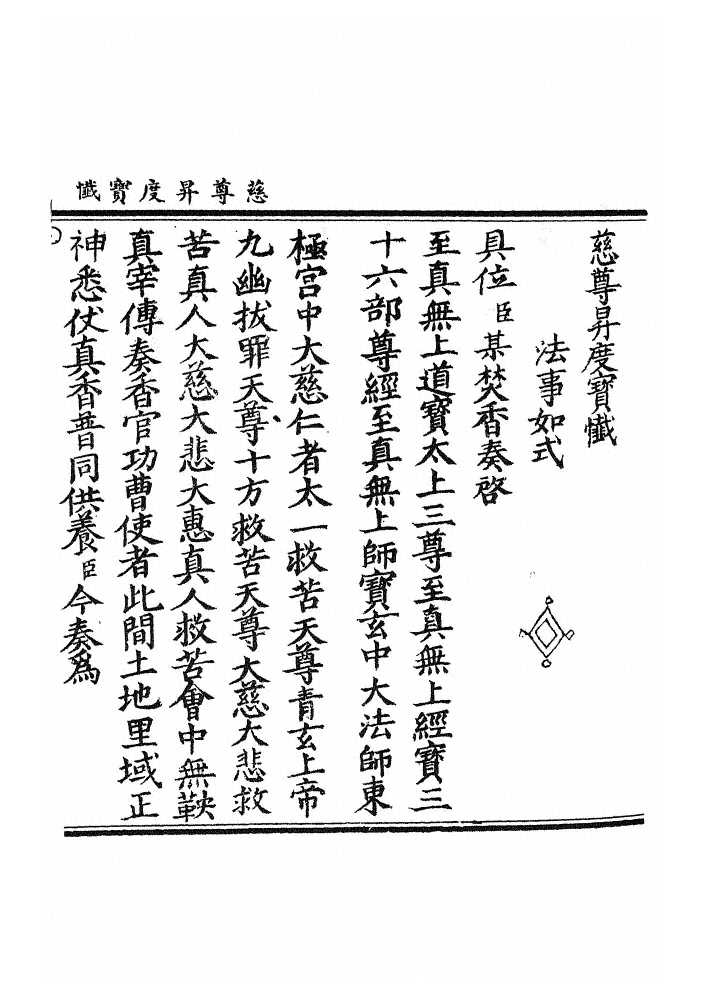 慈尊昇度寶懺
慈尊昇度寶懺
法事如式
具位臣某焚香奏啓
至真無上道寶太上三尊至真無上經寶三
十六部尊經至真無上師寶玄中大法師東
極宮中大慈仁者太一救苦天尊青玄上帝
九幽拔罪天尊十方救苦天尊大慈大悲救
苦真人大慈大悲大惠真人救苦會中無鞅
真宰傳奏香官功曹使者此間土地里域正
神悉仗真香普同供養臣今奏為